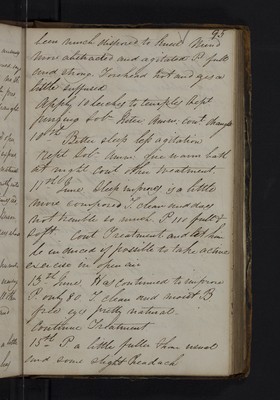 93
been much disposed to Kneel Mind
more abstracted and agitated P. full
and strong. Forehead hot and eyes a
little suffused
Apply 10 leeches to temples Rept
purging bot. Anem: cont
10th
Better sleep less agitation
Rept bot. Anem: give warm bath
at night Cont other treatment.
11th June, Sleep improves is a little
more composed. T. clean and does
not tremble so much P. 110 full &
soft. Cont Treatment and let him
be induced if possible to take active
exercise in open air
13th June, Has continued to improve
P. only 80 T. clean and moist B
free eyes pretty natural.
Continue Treatment
15th P. a little fuller than usual
and some slight Headach